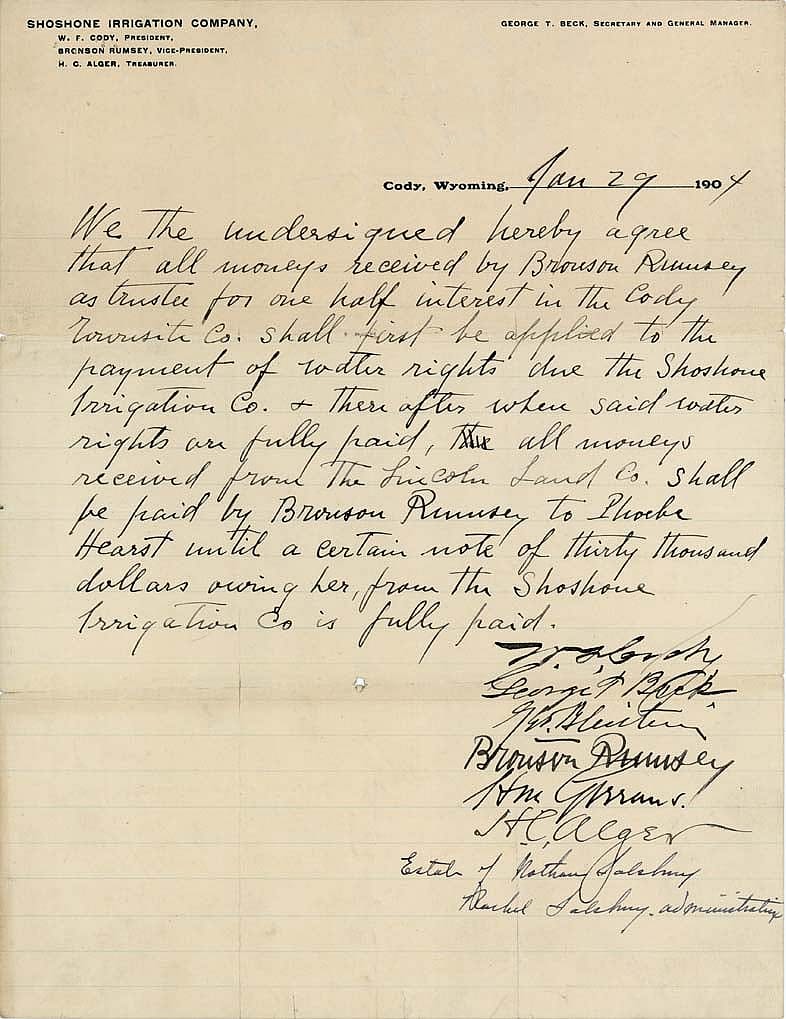 SHOSHONE IRRIGATION COMPANY,
W. F. CODY, PRESIDENT,
BRONSON RUMSEY, VICE-PRESIDENT,
H. C. ALGER, TREASURER.
GEORGE T. BECK, SECRETARY AND GENERAL MANAGER.
Cody, Wyoming, Jan 29 1904
We the undersigned hereby agree
that all moneys received by Bronson Rumsey
as trustee for one half interest in the Cody
Townsite Co. shall first be applied to the
payment of water rights due the Shoshone
Irrigation Co. & there after when said water
rights are fully paid, all moneys
received from the Lincoln Land Co. shall
be paid by Bronson Rumsey to Phoebe
Hearst until a certain note of thirty thousand
dollars owing her, from the Shoshone
Irrigation Co is fully paid.
W. F. Cody
George T Beck
Bleistein
Bronson Rumsey
HM Gerrans.
H. C. Alger
Estate of Nathan Salsbury
Rachel Salsbury. administratrix